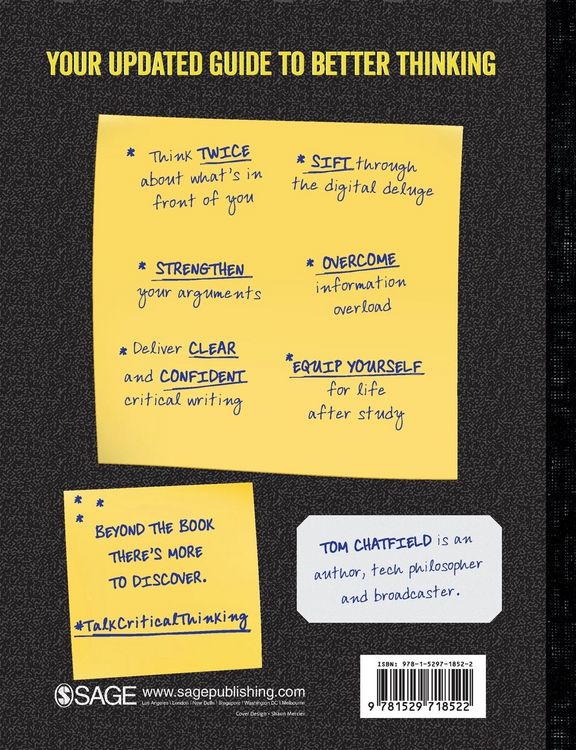 YOUR UPDATED GUIDE TO BETTER THINKING
* Think TWICE
about what's in
front of you
* SIFT through
the digital deluge
* STRENGTHEN
your arguments
* OVERCOME
information
overload
* Deliver CLEAR
and CONFIDENT
critical writing
*EQUIP YOURSELF
for life
after study
* *
*
BEYOND THE BOOK
THERE'S MORE
TO DISCOVER.
#TalkCriticalThinking
TOM CHATFIELD is an
author, tech philosopher
and broadcaster.
SAGE www.sagepublishing.com
Los Angeles | London | New Delhi | Singapore | Washington DC | Melbourne
Cover Design - Shaun Mercier
ISBN: 978-1-5297-1852-2
9 781529 718522